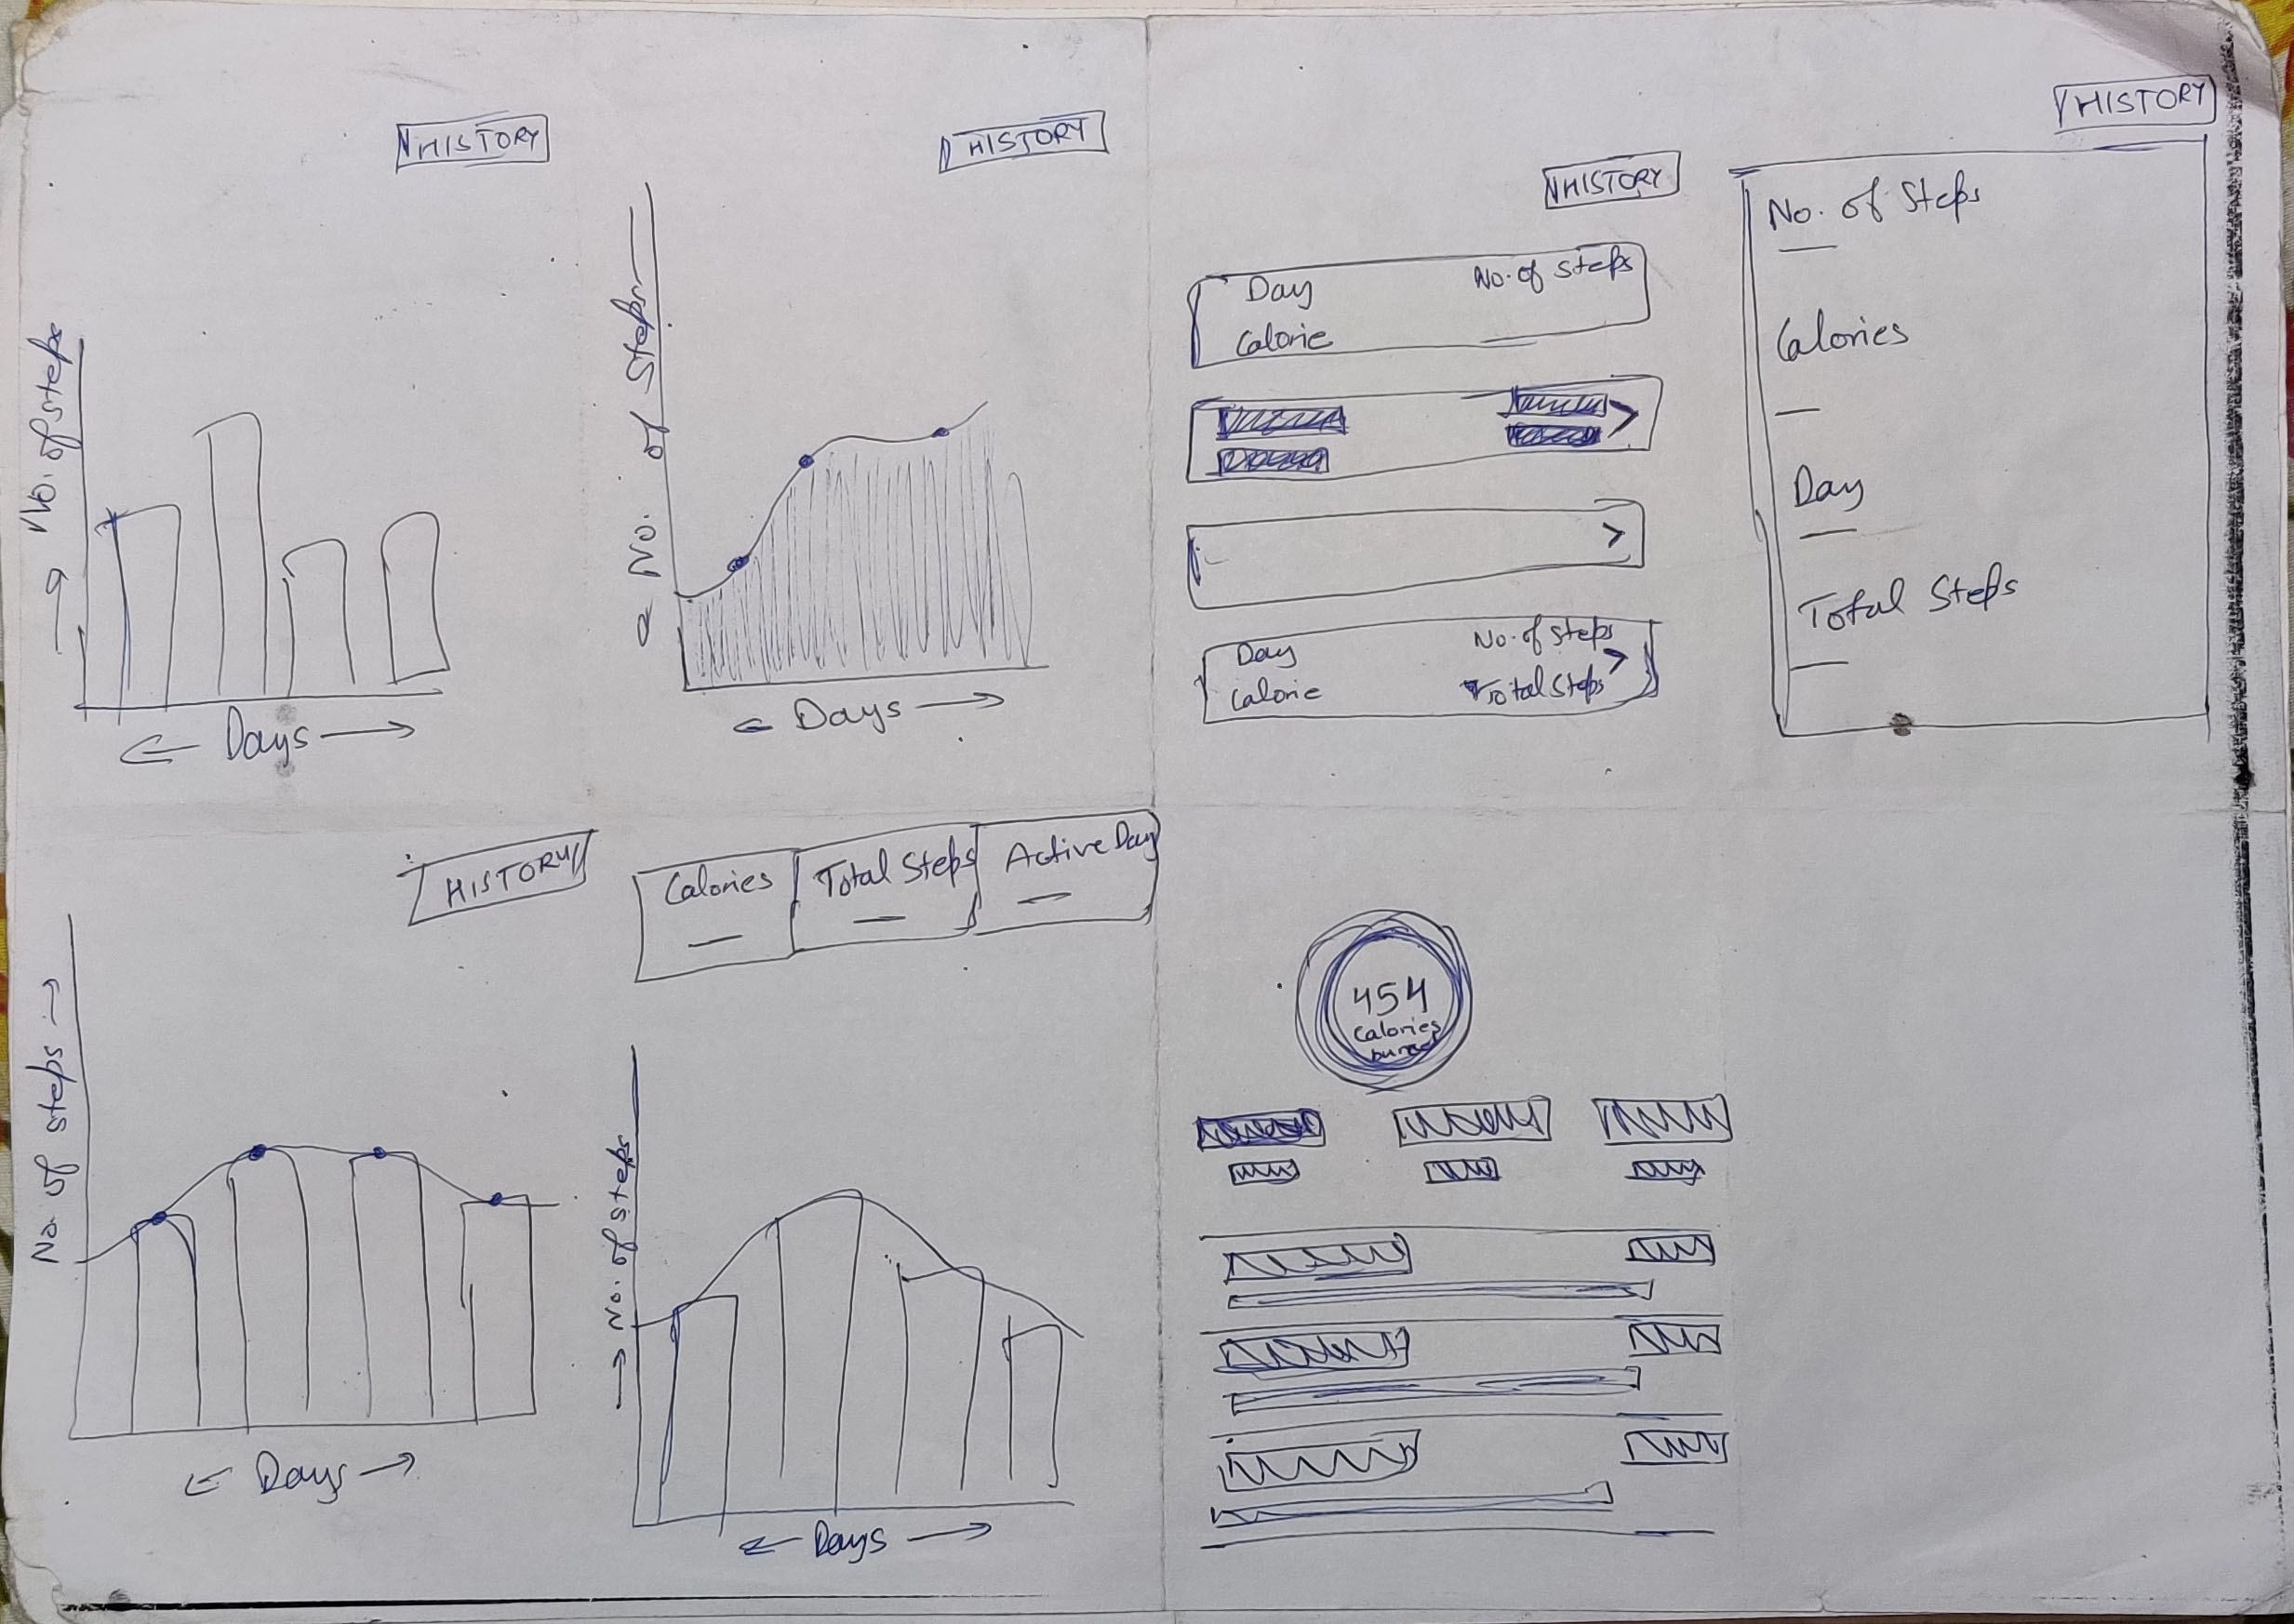 HISTORY
No. of steps
Days
HISTORY
No. of Steps
Days
HISTORY
Day No. of steps
Calorie
Day No. of steps
Calorie Total Steps
HISTORY
No. of Steps
Calories
Day
Total Steps
HISTORY
No. of steps
Days
Calories Total Steps Active Day
No. of steps
Days
454
Calories